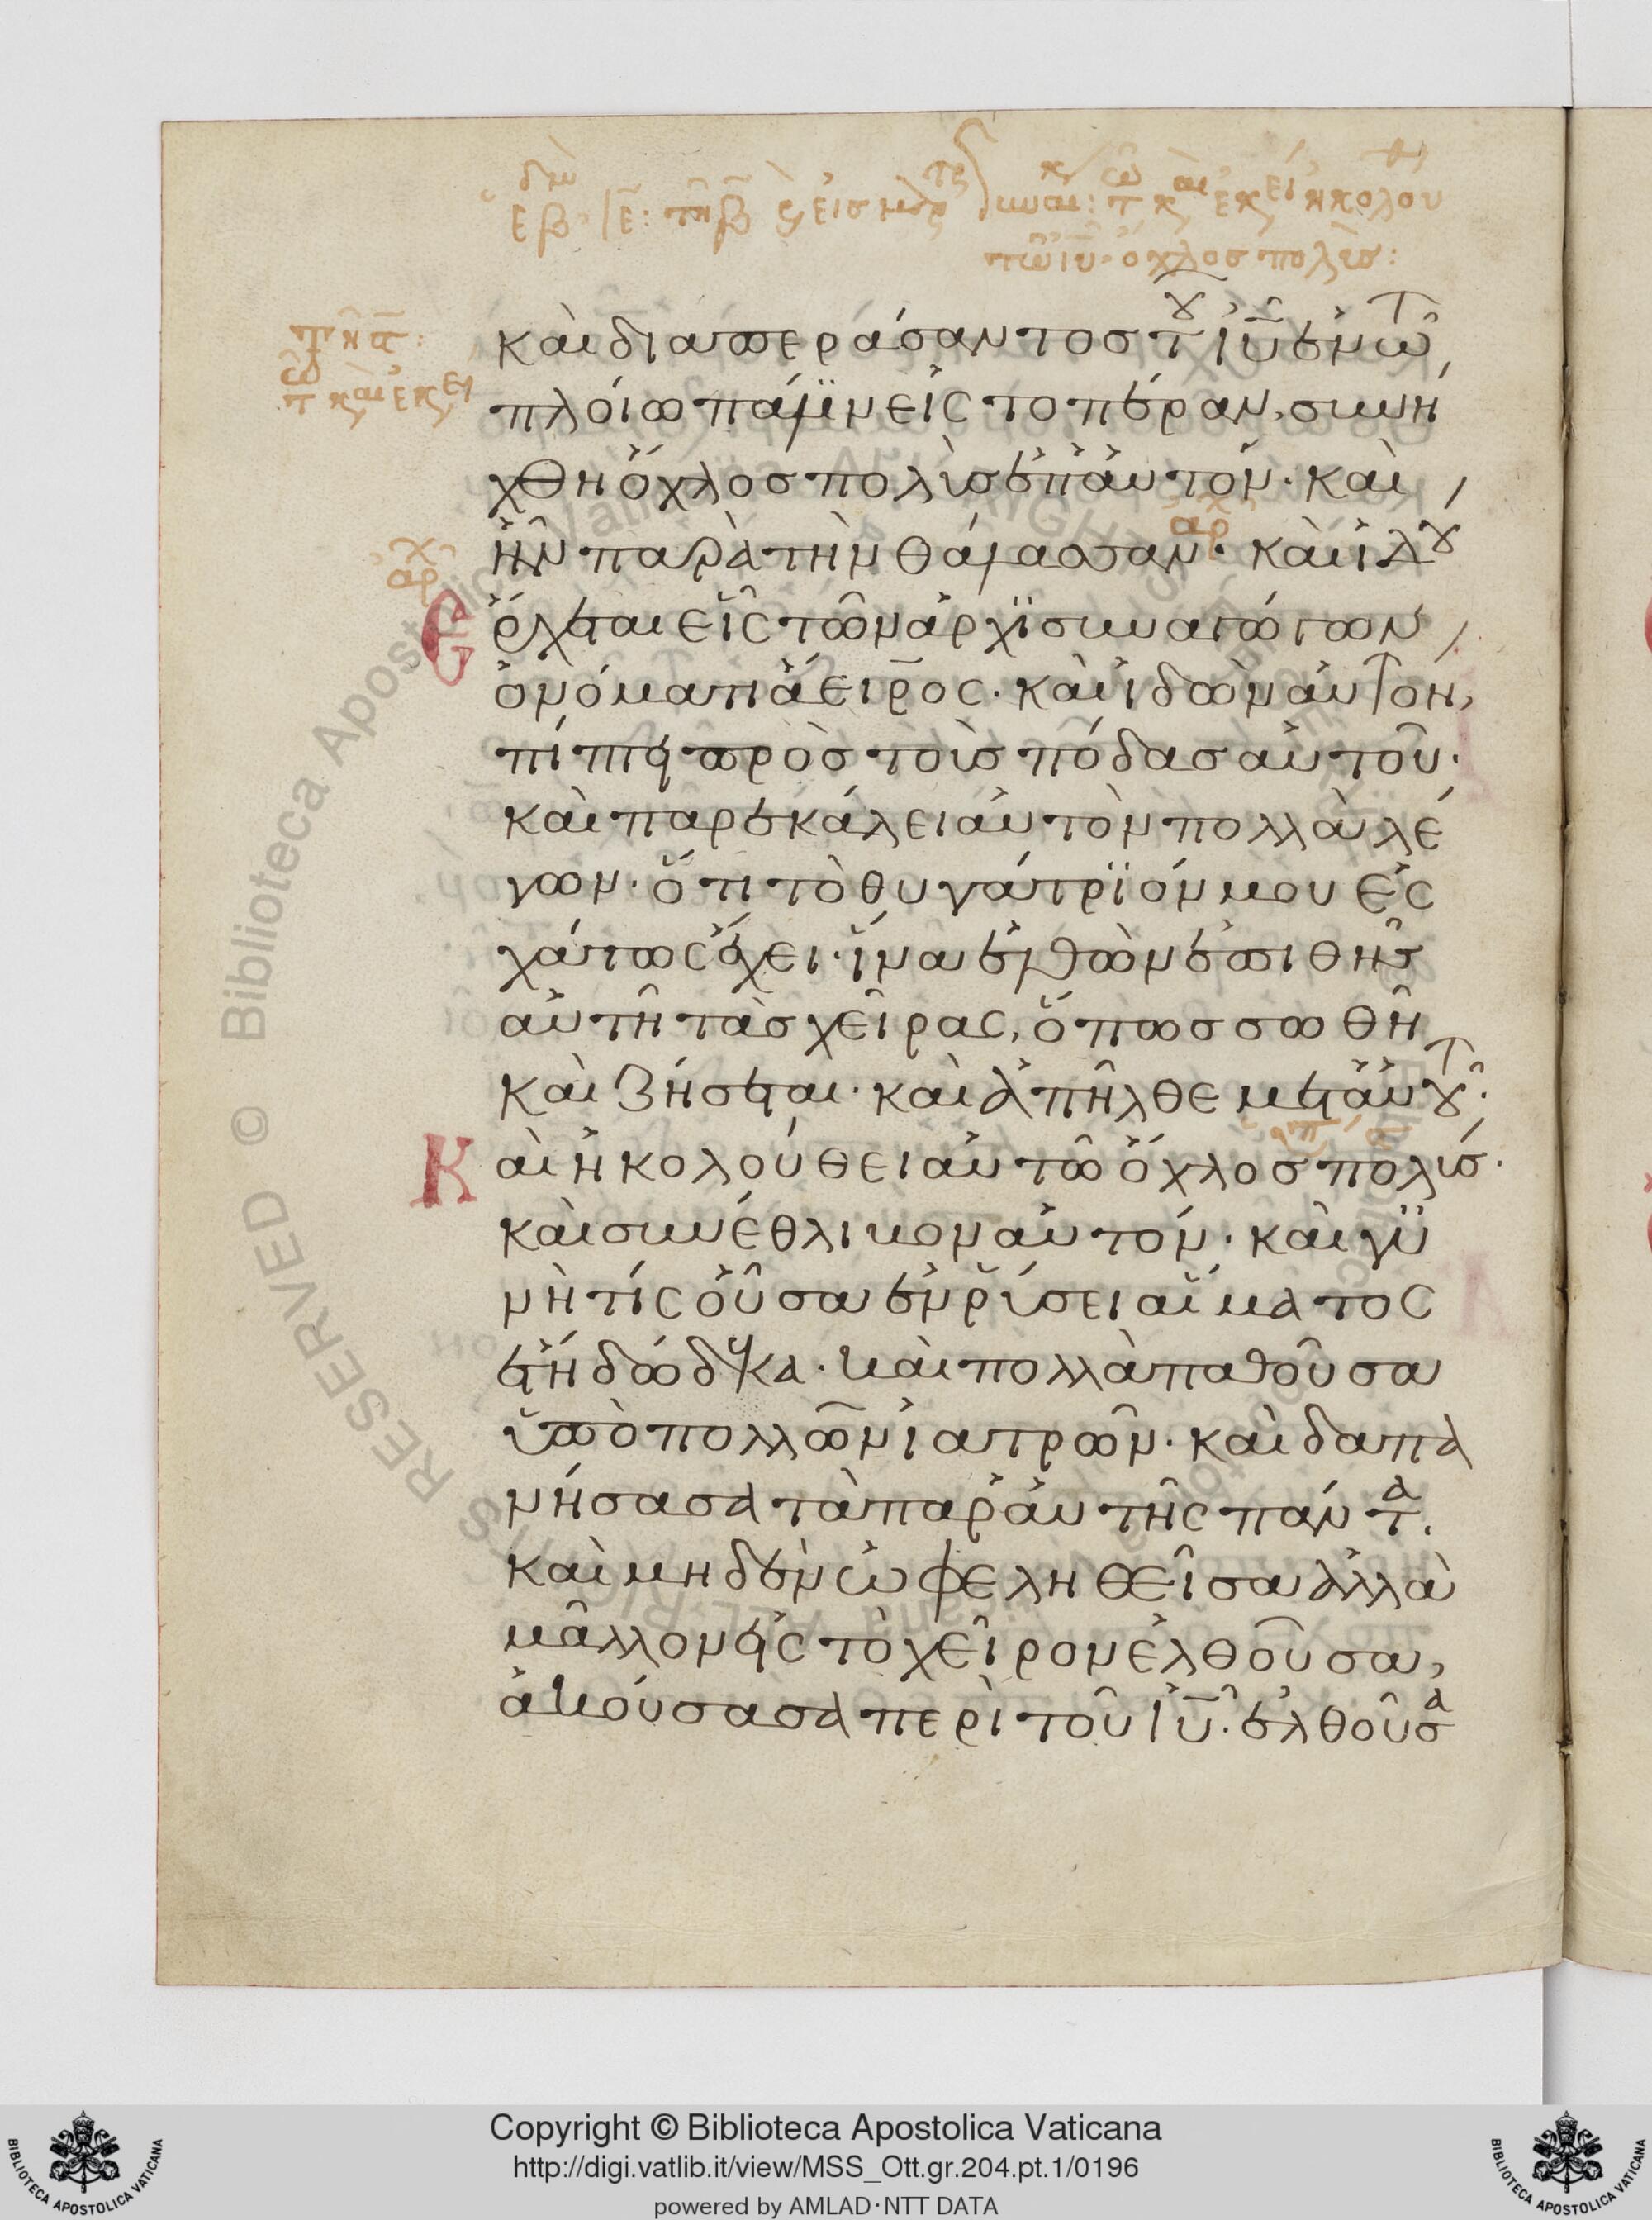 καὶ διαπεράσαντος τοῦ ἰῦ ἐν τῶ
πλοίω πάλϊν εἰς το πέραν, συνή
χθη ὄχλος πολὺς ἐπ ἀυτόν· καὶ
ἦν παρὰ τὴν θάλασσαν· καὶ ἰδοὺ
ἔρχεται εἷς τῶν ἀρχϊσυναγώγων
ὀνόματι ἰάειρος· καὶ ἰδὼν ἀυτον,
πίπτει πρὸς τοὺς πόδας αὐτοῦ·
καὶ παρεκάλει ἀυτὸν πολλὰ λέ
γων· ὅτι τὸ θυγάτρϊόν μου ἐσ
χάτως ἔχει· ἵνα ἐλθὼν ἐπιθῆς
αὐτῆ τὰς χεῖρας, ὅπως σωθῆ
καὶ ζήσεται· καὶ ἀπῆλθε μετ ἀυτοῦ·
Καὶ ἠκολούθει ἀυτῶ ὄχλος πολύς·
καὶ συνέθλιβον αὐτόν· καὶ γυ
νὴ τίς οὖσα ἐν ῥύσει αἵματος
ἔτη δώδεκα· καὶ πολλὰ παθοῦσα
ὑπὸ πολλῶν ἰατρῶν· καὶ δαπα
νήσασα τὰ παρ ἀυτῆς πάντα.
καὶ μηδὲν ὠφεληθεῖσα ἀλλὰ
μᾶλλον εἰς τὸ χεῖρον ἐλθοῦσα,
ἀκούσασα περὶ τοῦ ἰῦ· ἐλθοῦσα
RESERVED © Biblioteca Apostolica Vaticana
Copyright © Biblioteca Apostolica Vaticana
http://digi.vatlib.it/view/MSS_Ott.gr.204.pt.1/0196
powered by AMLAD·NTT DATA
BIBLIOTECA APOSTOLICA VATICANA
BIBLIOTECA APOSTOLICA VATICANA